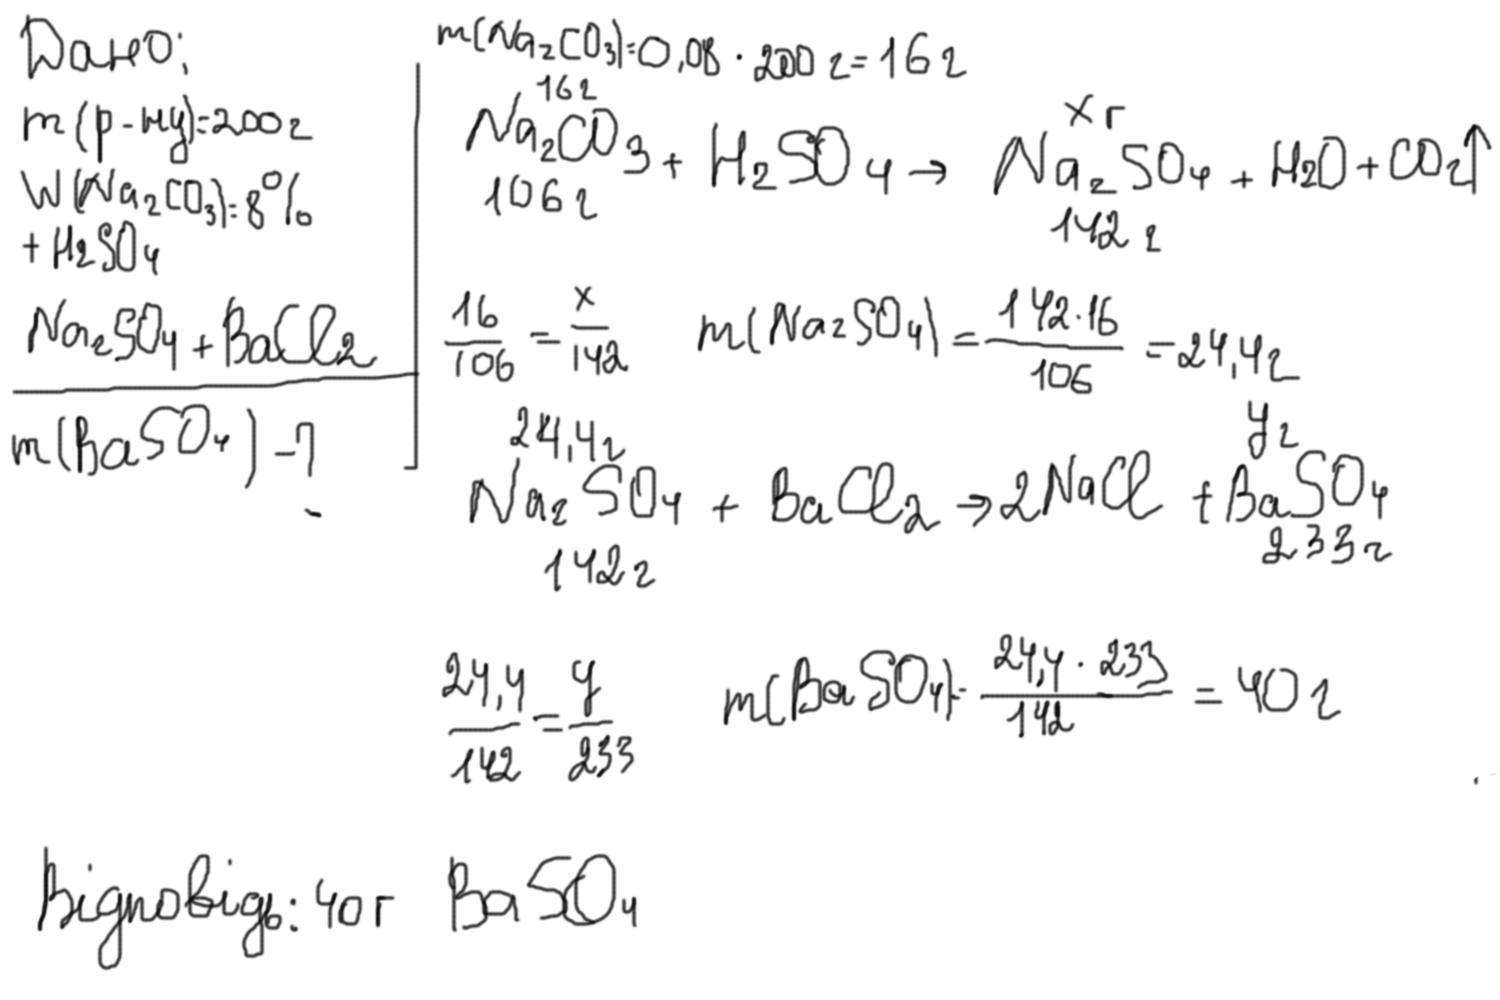 Дано:
m(р-ну)=200г
W(Na₂CO₃)=8%
+H₂SO₄
Na₂SO₄+BaCl₂
m(BaSO₄)-?
m(Na₂CO₃)=0,08·200г=16г
16г xг
Na₂CO₃+H₂SO₄→Na₂SO₄+H₂O+CO₂↑
106г 142г
16/106=x/142 m(Na₂SO₄)=142·16/106=24,4г
24,4г yг
Na₂SO₄+BaCl₂→2NaCl+BaSO₄
142г 233г
24,4/142=y/233 m(BaSO₄)=24,4·233/142=40г
Відповідь: 40г BaSO₄